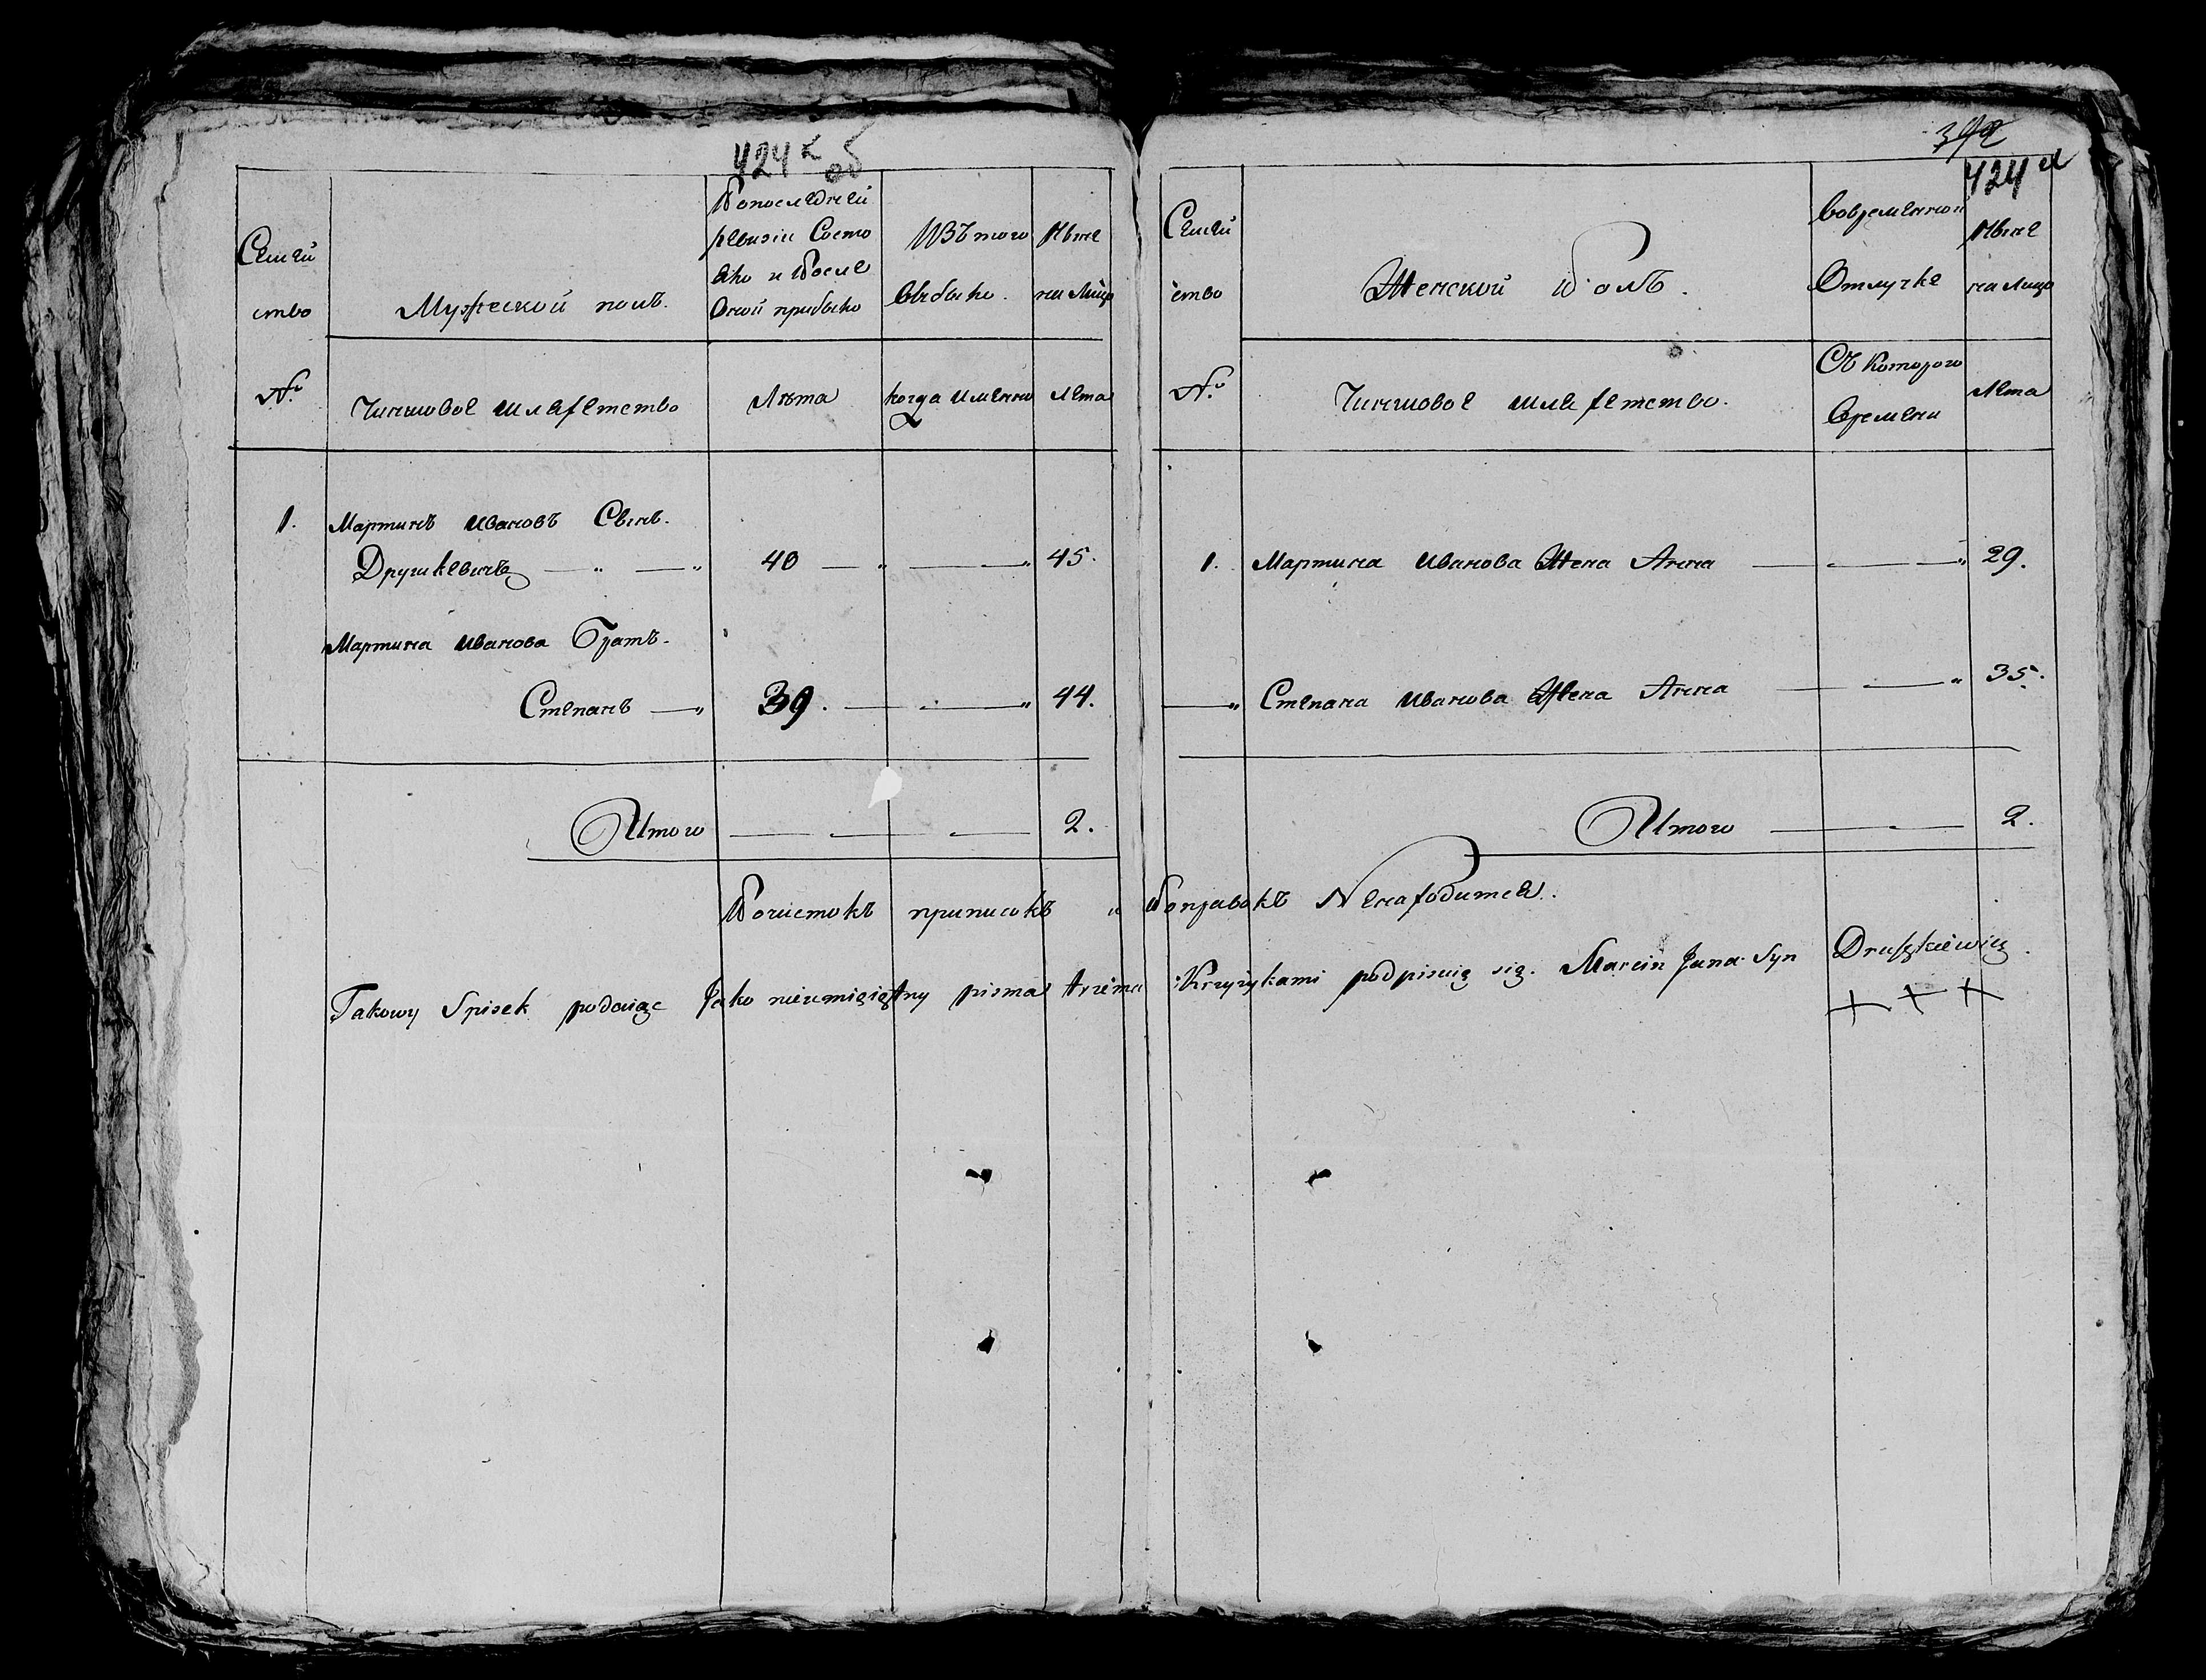 424 об
Семей
ство
№
Мужеской полъ.
Чиншовое шляхетство
Попоследней
ревизiи Состо
яло и После
Оной прибыло
Лѣта
Изъ того
выбыло.
когда именно
Ныне
на Лицо
Лета
1. Мартинъ Ивановъ Сынъ.
Друшкевичъ 40 45.
Мартина Иванова Братъ.
Степанъ 39. 44.
Итого 2.
392
424
Семей
ство
№
Женской Полъ.
Чиншовое шляхетство.
Вовременной
Отлучке
Съ Которого
Времени
Ныне
на Лицо
Лета
1. Мартина Иванова Жена Анна 29.
Степана Иванова Жена Анна 35.
Итого 2.
Почистокъ приписокъ и Поправокъ Ненаходится.
Takowy Spisek podaiąc Jako nieumieiętny pisma trzema Krzyżykami podpisuię się. Marcin Jana Syn Druszkiewicz.
+ + +